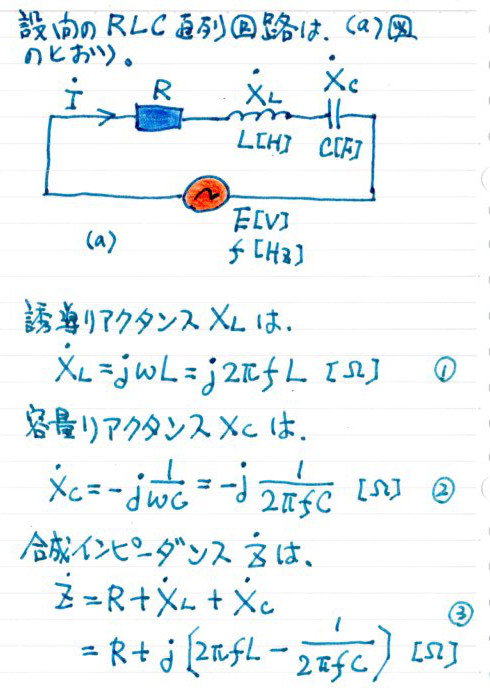 設問のRLC直列回路は、(a)図
のとおり。
İ R ẊL ẊC
L[H] C[F]
E[V]
(a)
f[Hz]
誘導リアクタンスXLは、
ẊL=jωL=j2πfL [Ω] ①
容量リアクタンスXCは、
ẊC=-j1/ωC=-j1/2πfC [Ω] ②
合成インピーダンスŻは、
Ż=R+ẊL+ẊC
③
=R+j(2πfL-1/2πfC) [Ω]